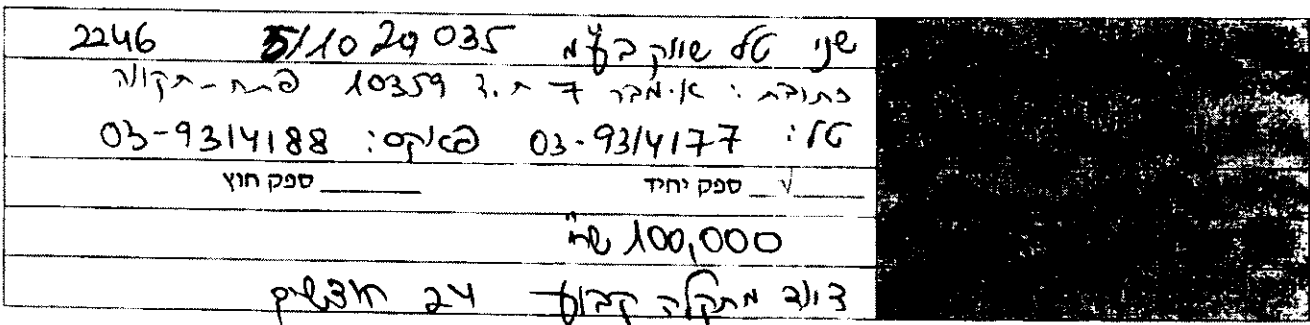 שני טל שווק בע"מ 511029035 2246
כתובת: א.מבר 7 ת.ד 10359 פתח-תקווה
טל: 03-9314177 פאקס: 03-9314188
√ ספק יחיד ספק חוץ
100,000 ש"ח
ציוד מתקלה קבוע 24 חודשים